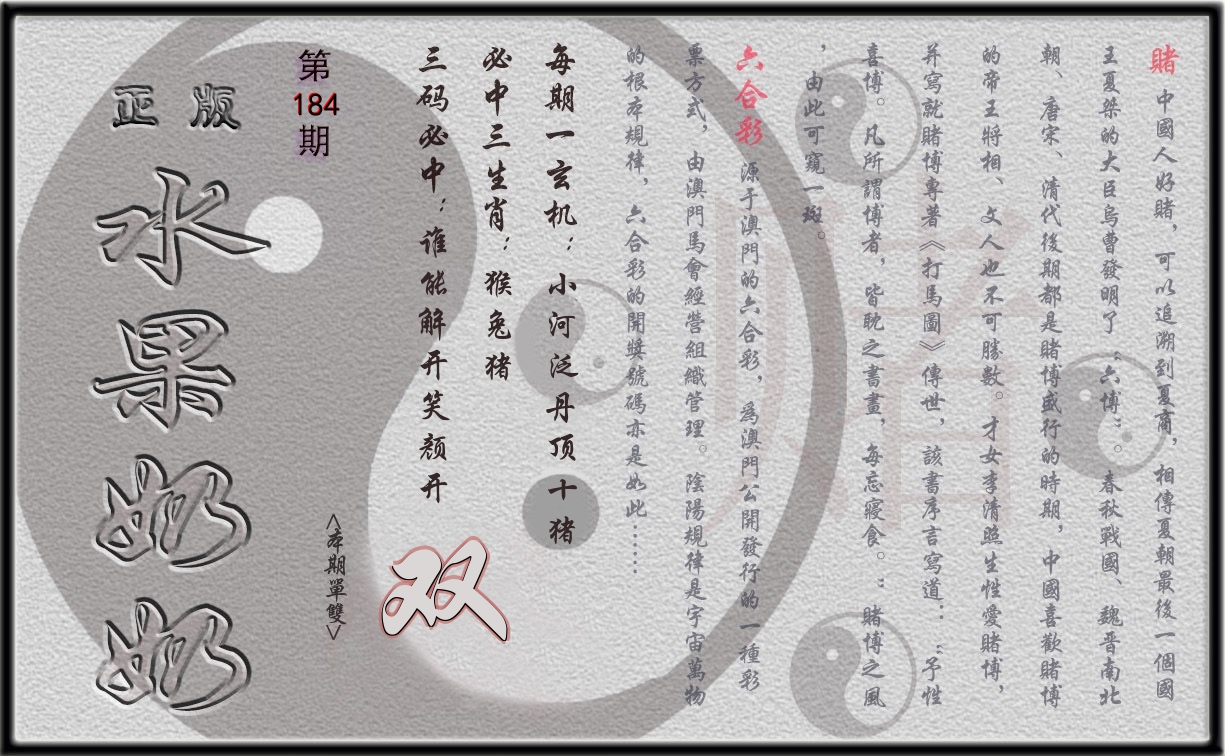 賭 中國人好賭，可以追溯到夏商，相傳夏朝最後一個國
王夏桀的大臣烏曹發明了“六博”。春秋戰國、魏晋南北
朝、唐宋、清代後期都是賭博盛行的時期，中國喜歡賭博
的帝王將相、文人也不可勝數。才女李清照生性愛賭博，
并寫就賭博專著《打馬圖》傳世，該書序言寫道：“予性
喜博。凡所謂博者，皆耽之書畫，每忘寢食。”賭博之風
，由此可窺一斑。
六合彩 源于澳門的六合彩，為澳門公開發行的一種彩
票方式，由澳門馬會經營組織管理。陰陽規律是宇宙萬物
的根本規律，六合彩的開獎號碼亦是如此……
每期一玄机：小河泛丹顶十猪
必中三生肖：猴兔猪
三码必中：谁能解开笑颜开
双
<本期單雙>
第
184
期
正版
水果奶奶
赌